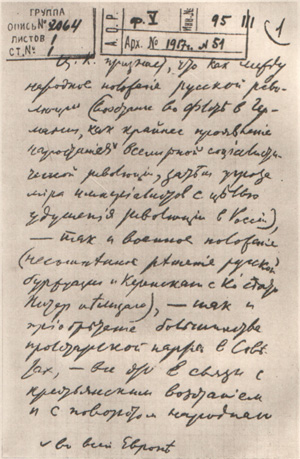 ГРУППА
ОПИСЬ № 2064
ЛИСТОВ 1
СТ. № 1
А.О.Р.
ф. V
Инв. №
95 III
Арх. № 1917 г. № 51
1
Ц. К. признает, что как между
народное положение русской рево
люции (восстание во флоте в Гер
мании, как крайнее проявление
нарастания всемирной социалисти
ческой революции, затем угроза
мира империалистов с целью
удушения революции в России),
— так и военное положение
(несомненное решение русской
буржуазии и Керенского с Ко сдать
Питер немцам), — так и
приобретение большинства
пролетарской партией в Сове
тах, — все это в связи с
крестьянским восстанием
и с поворотом народного
во всей Европе